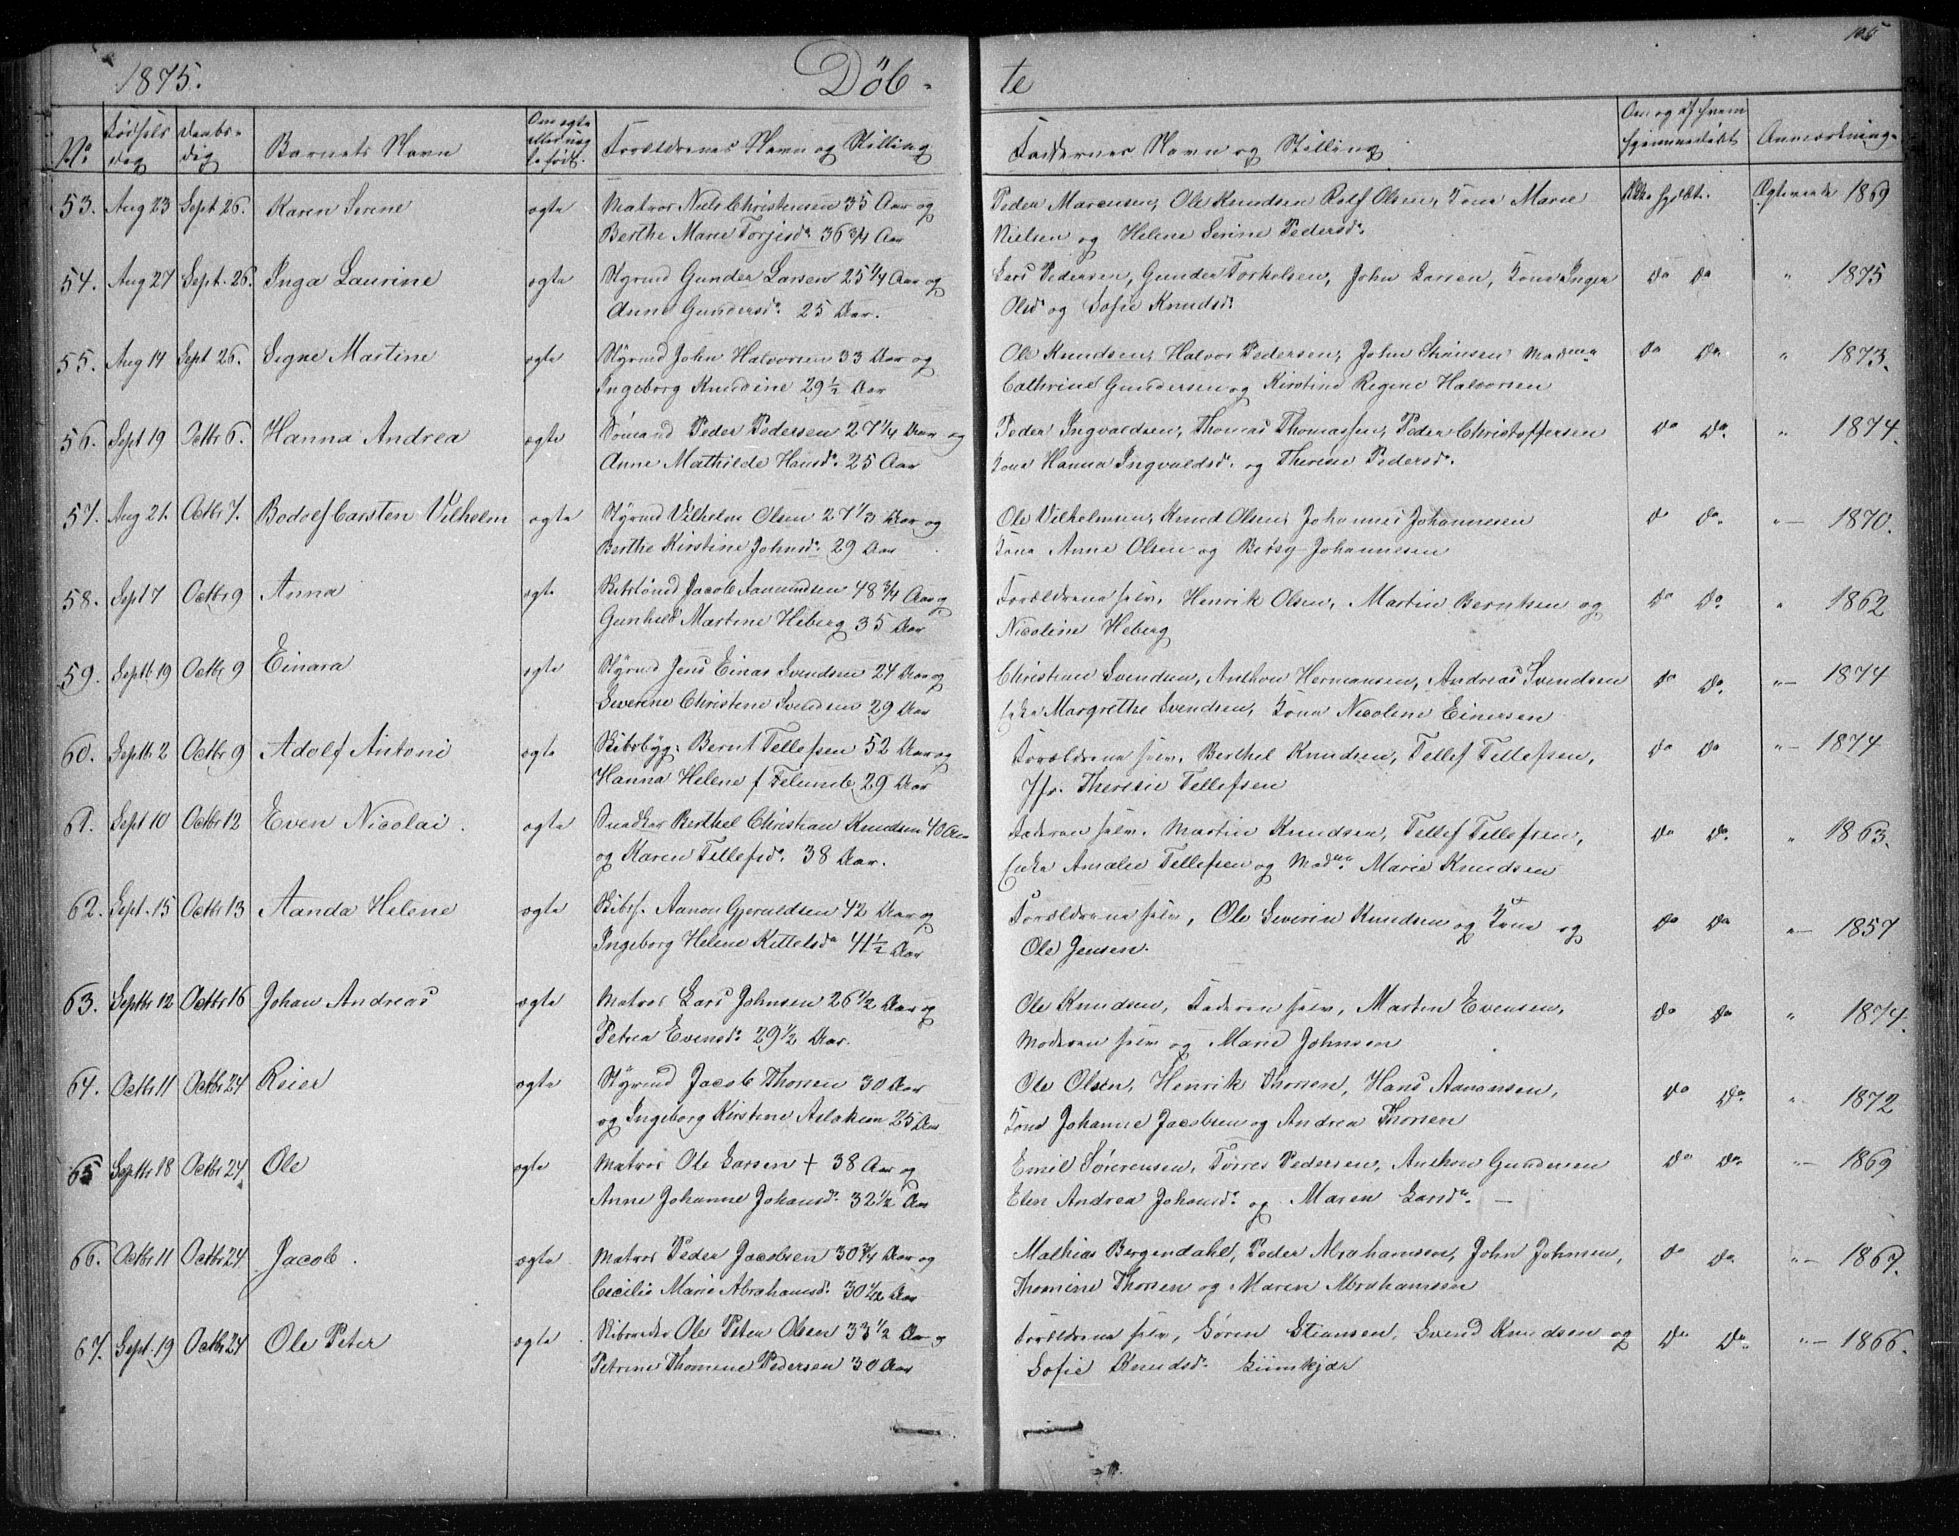 105
1875. Döb- te
No. Fødsels dag Daabs- dag Barnets Navn Om ægte eller uægte født. Forældrenes Navn og Stilling Faddernes Navn og Stilling Om og af hvem hjemmedøbt Anmærkning.
53. Aug 23 Sept 26. Karen Serine ægte Matros Niels Christensen 35 Aar og Peder Marensen, Ole Knudsen Rolf Olsen, Kone Marie Ikke hjdøbt. Ægteviede 1869
Berthe Marie Torjesdr. 36 3/4 Aar Nielsen og Helene Serine Pedersdr.
54. Aug 27 Sept. 26. Inga Laurine ægte Styrmd Gunder Larsen 25 1/4 Aar og Lars Pedersen, Gunder Torkelsen, John Larsen, Kone Inger Do Do " 1875
Anne Gundersdr. 25 Aar. Olsdr og Sofie Knudsdr
55. Aug 14 Sept 26. Signe Martine ægte Styrmd John Halvorsen 33 Aar og Ole Knudsen, Halvor Pedersen, John Stiansen Madme Do Do. " 1873.
Ingeborg Knudine 29 1/2 Aar Cathrine Gundersen og Kirstine Regine Halvorsen
56. Sept 19 Octbr 6. Hanna Andrea ægte Sömand Peder Pedersen 27 1/4 Aar og Peder Ingvaldsen, Thomas Thomassen, Peder Christoffersen Do Do. " 1874.
Anne Mathilde Hansdr. 25 Aar Kone Hanna Ingvaldsdr. og Therese Pedersdr.
57. Aug 21. Octbr 7. Bodolf Carsten Vilhelm ægte Styrmd Vilhelm Olsen 27 1/3 Aar og Ole Vilhelmsen, Knud Olsen, Johannes Johannesen Do Do. " 1870.
Berthe Kirstine Johnsdr. 29 Aar Kone Anne Olsen og Johannesen
58. Sept 7 Octbr 9 Anna ægte Jacob Samundsen 48 3/4 Aar og Forældrene selv, Henrik Olsen, Martin Berntsen og Do Do. " 1862
Gunhild Martine Heberg 35 Aar Nicoline Heberg
59. Septb. 19 Octbr 9 Einara ægte Styrmd Jens Einar Svendsen 24 Aar og Christian Svendsen, Anthon Hermansen, Andreas Svendsen Do Do. " 1874
Severine Christine Svendsen 29 Aar Enke Margrethe Svendsen, Kone Nicoline Einersen
60. Septb. 2 Octbr 9 Adolf Antoni ægte Skibsbyg. Bernt Tellefsen 52 Aar og Forældrene selv, Berthel Knudsen, Tellef Tellefsen, Do Do " 1874
Hanna Helene f 29 Aar Jfr. Theresie Tellefsen
61. Sept 10 Octbr 12 Even Nicolai. ægte Snedker Berthel Christian Knudsen 40 Aar Faderen selv, Martin Knudsen, Tellef Tellefsen, Do Do. " 1863.
og Karen Tellefsdr. 38 Aar. Enke Amalie Tellefsen og Madme. Marie Knudsen
62. Sept. 15 Octbr 13 Aanda Helene ægte Skibsf. Aanon Gjeruldsen 42 Aar og Forældrene selv, Ole Severin Knudsen og Kone og Do Do " 1857
Ingeborg Helene Kittelsdr 41 1/2 Aar Ole Jensen.
63. Septbr 12 Octbr 16 Johan Andreas ægte Matros Lars Johnsen 26 1/2 Aar og Ole Knudsen, Faderen selv, Martin Evensen, Do Do " 1874.
Petrea Evensdr. 29 1/2 Aar. Moderen selv og Marie Johnsen
64. Octbr 11 Octbr 24 Reier ægte Styrmd Jacob Thorsen 30 Aar Ole Olsen, Henrik Thorsen, Hans Aanonsen, Do Do. " 1872
og Ingeborg Kirstine Aslaksen 25 Aar Kone Johanne Jacobsen og Andrea Thorsen
65 Septbr 18 Octbr 24 Ole ægte Matros Ole Larsen + 38 Aar og Emil Sörensen, Törres Pedersen, Anthon Gundersen Do Do. " 1869
Anne Johanne Johansdr. 32 1/2 Aar Elen Andrea Johansdr. og Maren Larsdr. —
66. Octbr 11 Octbr 24 Jacob. ægte Matros Peder Jacobsen 30 3/4 Aar og Mathias Bergendahl, Peder Abrahamsen, John Johnsen, Do Do. " 1867.
Cecilie Marie Abrahamsdr. 30 1/2 Aar Thomine Thorsen og Maren Abrahamsen
67. Sept. 19 Octbr 24 Ole Peter ægte Ole Peter Olsen 33 1/2 Aar og Forældrene selv, Sören Stiansen, Svend Knudsen og Do Do. " 1866.
Petrine Thomine Pedersen 30 Aar Sofie Knudsdr.